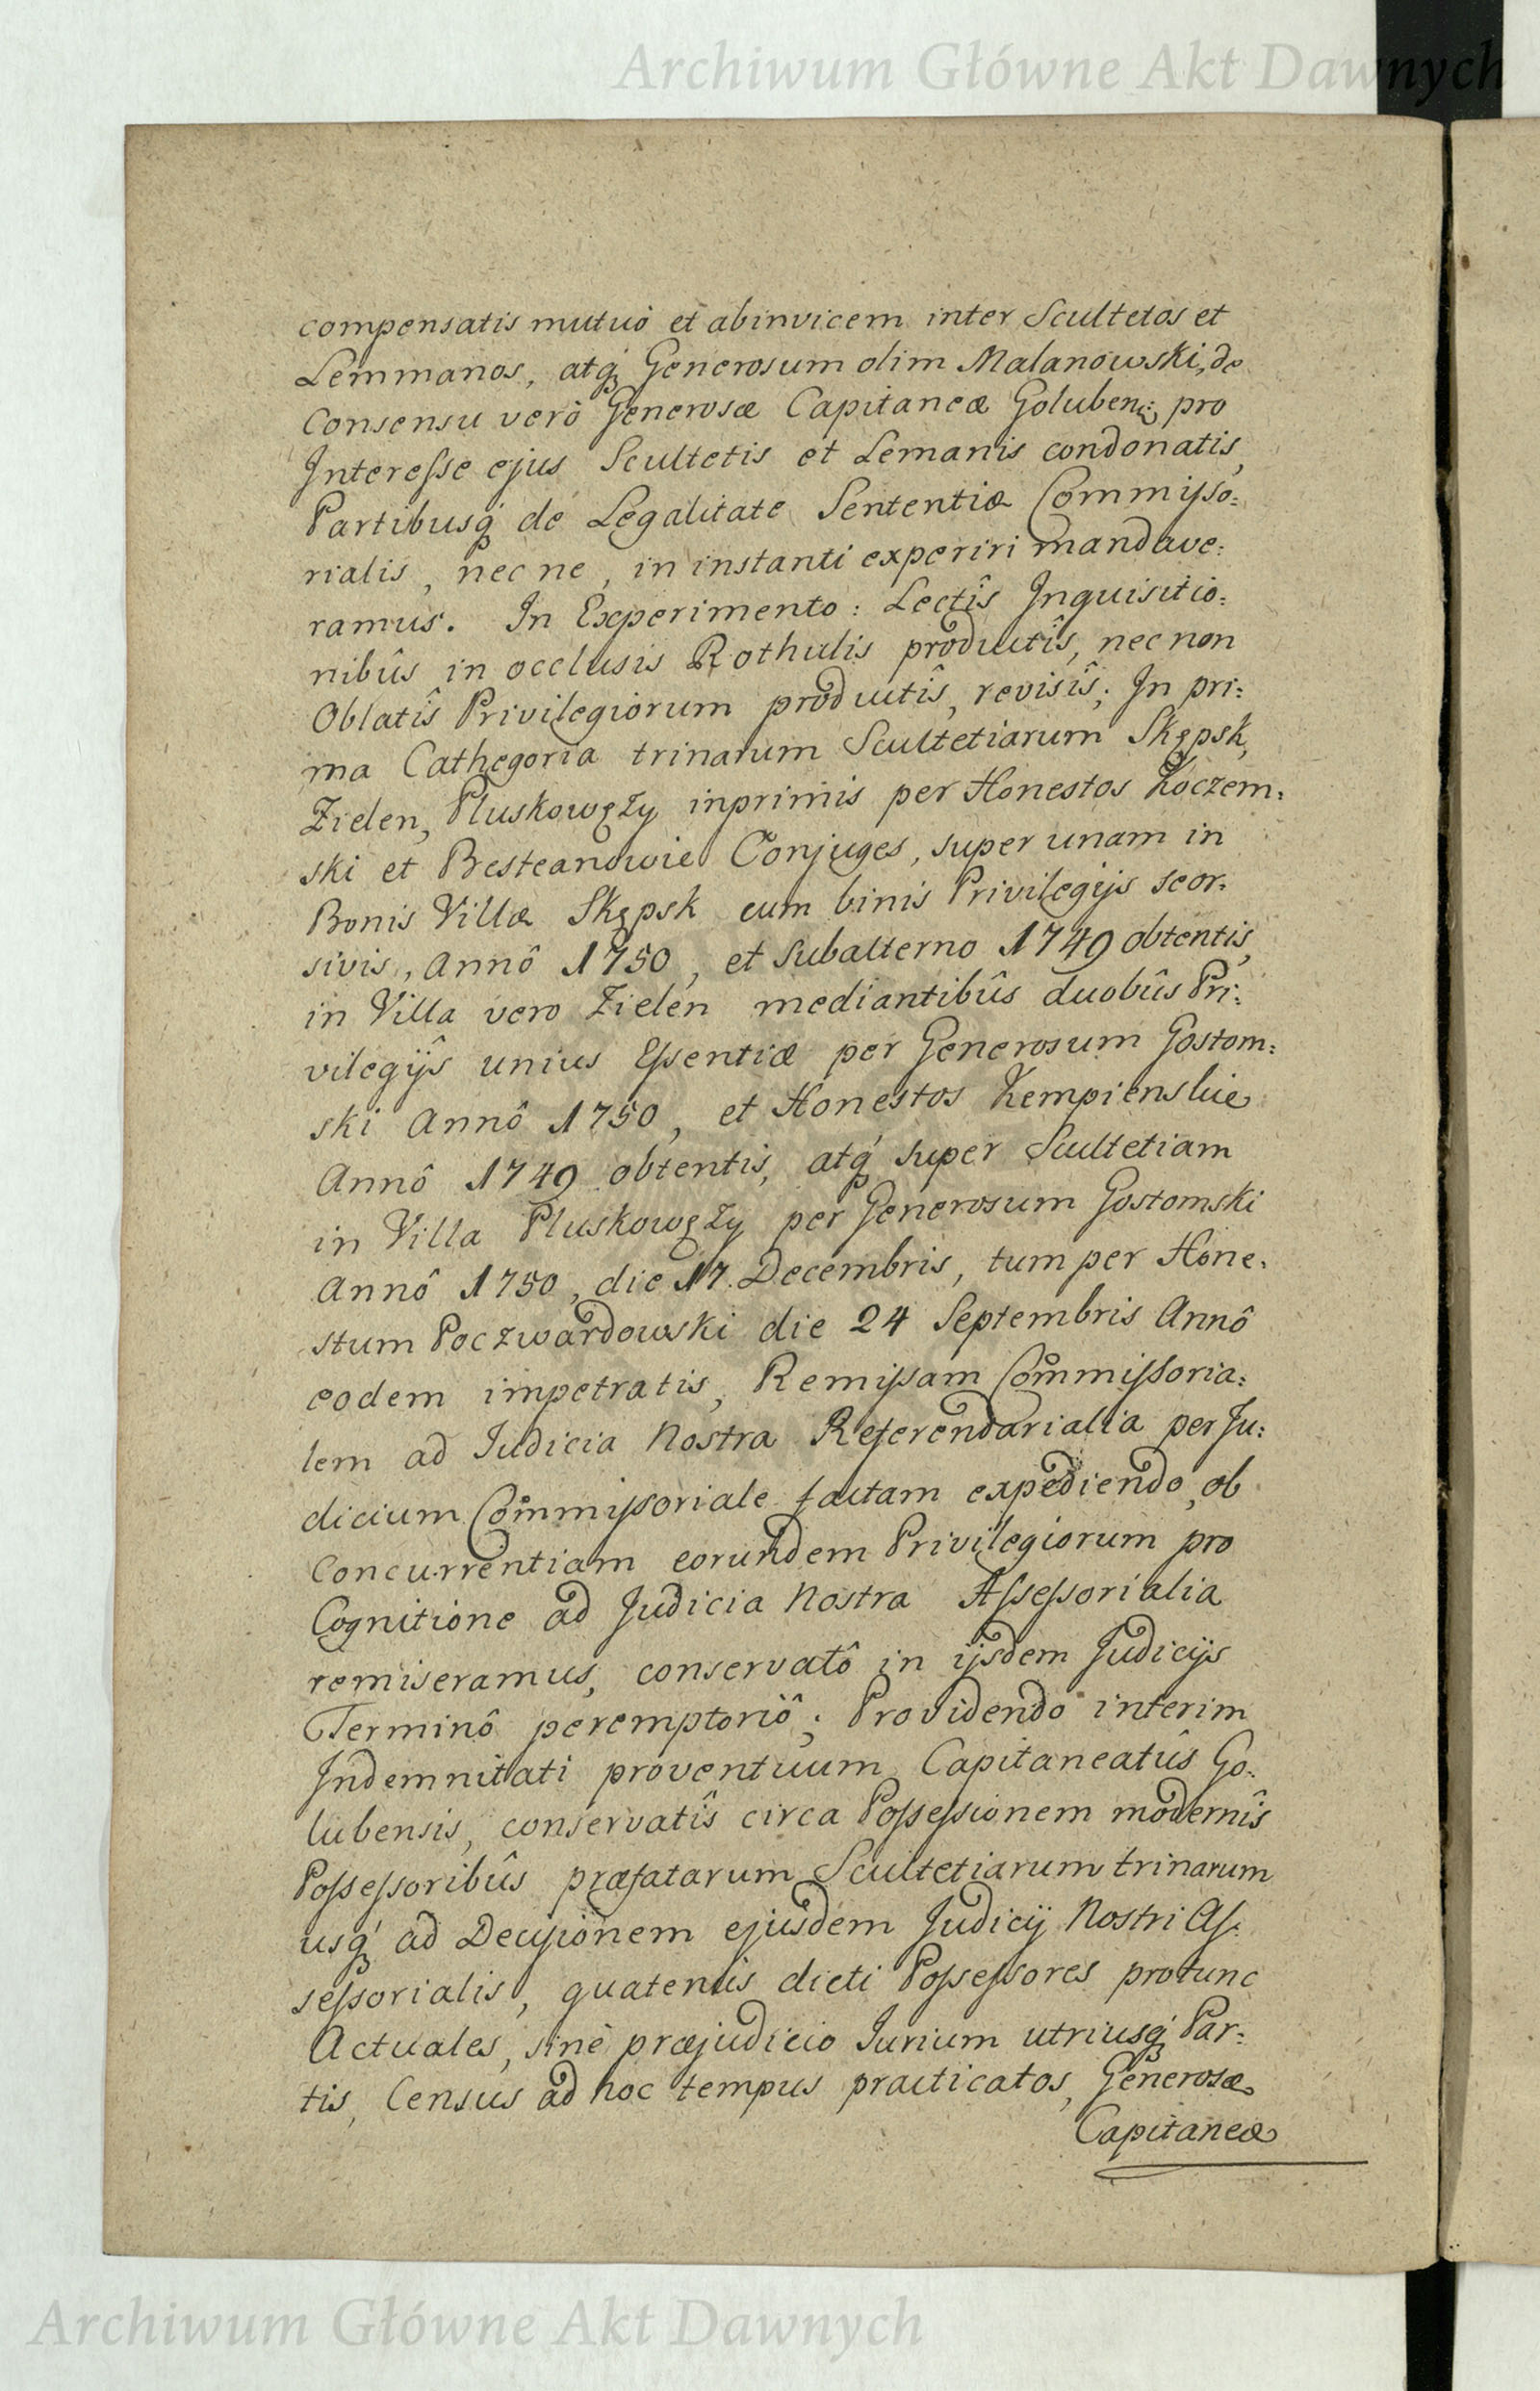 Archiwum Główne Akt Dawnych
compensatis mutuò et abinvicem inter Scultetos et
Lemmanos, atq́ Generosum olim Malanowski, de
Consensu verò Generosæ Capitaneæ Goluben: pro
Interesse ejus Scultetis et Lemanis condonatis,
Partibusq́ de Legalitate Sententiæ Commisso:
rialis, nec ne, in instanti experiri mandave:
ramus. In Experimento: Lectîs Inquisitio:
nibûs in occlusis Rothulis productîs, nec non
Oblatîs Privilegiorum productîs, revisîs; In pri:
ma Cathegoria trinarum Scultetiarum Skępsk,
Zielen, Pluskowęzy inprimis per Honestos Koczem:
ski et Besteanowie Conjuges, super unam in
Bonis Villæ Skępsk cum binis Privilegijs seor:
sivis, Annô 1750, et subalterno 1749 obtentis,
in Villa vero Zielen mediantibûs duobûs Pri:
vilegijs unius Essentiæ per Generosum Gostom:
ski Annô 1750, et Honestos Kempienskie
Annô 1749 obtentis, atq́ super Scultetiam
in Villa Pluskowęzy per Generosum Gostomski
Annô 1750, die 17. Decembris, tum per Hone:
stum Poczwardowski die 24 Septembris Annô
eodem impetratis, Remissam Commissoria:
lem ad Iudicia Nostra Referendarialia per Ju:
dicium Commissoriale factam expediendo, ob
Concurrentiam eorundem Privilegiorum pro
Cognitione ad Judicia Nostra Assessorialia
remiseramus, conservatô in ijsdem Judicijs
Terminô peremptoriô; Providendo interim
Indemnitati proventuum Capitaneatûs Go:
lubensis, conservatîs circa Possessionem modernîs
Possessoribûs præfatarum Scultetiarum trinarum
usq́ ad Decisionem ejusdem Judicij Nostri As:
sessorialis, quatenus dicti Possessores protunc
Actuales, sinè præjudicio Iurium utriusq́ Par:
tis, Census ad hoc tempus practicatos, Generosæ
Capitaneæ
Archiwum Główne Akt Dawnych